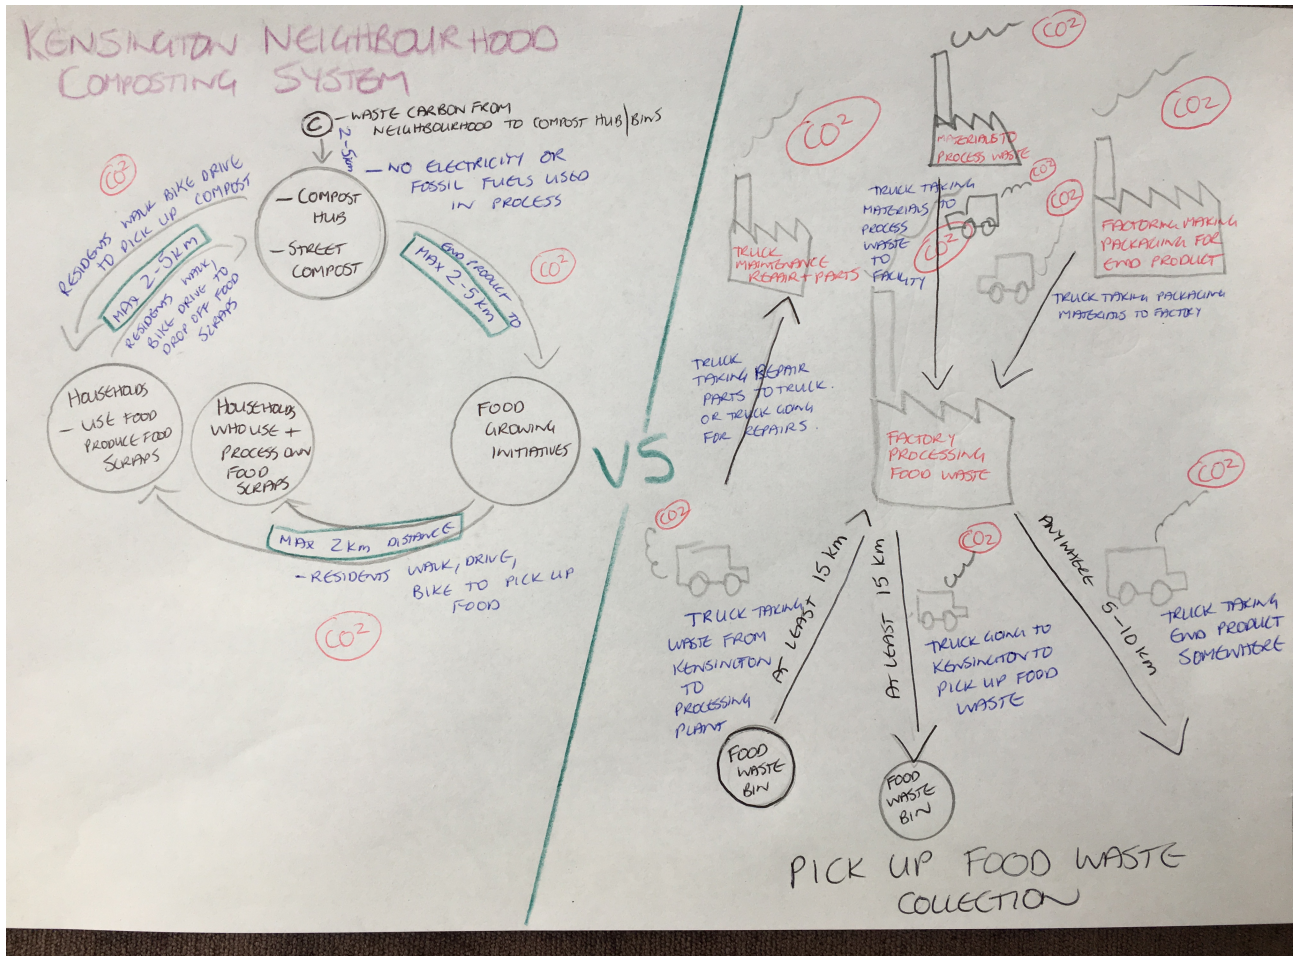 KENSINGTON NEIGHBOURHOOD
COMPOSTING SYSTEM
C
- WASTE CARBON FROM
NEIGHBOURHOOD TO COMPOST HUB/BINS
2-5km
- NO ELECTRICITY OR
FOSSIL FUELS USED
IN PROCESS
CO2
RESIDENTS WALK BIKE DRIVE
TO PICK UP COMPOST
MAX 2-5KM
RESIDENTS WALK,
BIKE DRIVE TO
DROP OFF FOOD
SCRAPS
- COMPOST
HUB
- STREET
COMPOST
END PRODUCT TO
MAX 2-5 KM
CO2
HOUSEHOLDS
- USE FOOD
PRODUCE FOOD
SCRAPS
HOUSEHOLDS
WHO USE +
PROCESS OWN
FOOD
SCRAPS
FOOD
GROWING
INITIATIVES
MAX 2 Km DISTANCE
- RESIDENTS WALK, DRIVE,
BIKE TO PICK UP
FOOD
CO2
VS
CO2
CO2
CO2
MATERIALS TO
PROCESS WASTE
CO2
CO2
CO2
TRUCK
MAINTENANCE
REPAIR + PARTS
TRUCK TAKING
MATERIALS TO
PROCESS
WASTE
TO
FACILITY
FACTORING MAKING
PACKAGING FOR
END PRODUCT
TRUCK TAKING PACKAGING
MATERIALS TO FACTORY
TRUCK
TAKING REPAIR
PARTS TO TRUCK.
OR TRUCK GOING
FOR REPAIRS.
FACTORY
PROCESSING
FOOD WASTE
CO2
TRUCK TAKING
WASTE FROM
KENSINGTON
TO
PROCESSING
PLANT
AT LEAST 15 KM
AT LEAST 15 KM
CO2
TRUCK GOING TO
KENSINGTON TO
PICK UP FOOD
WASTE
ANYWHERE 5-10 KM
CO2
TRUCK TAKING
END PRODUCT
SOMEWHERE
FOOD
WASTE
BIN
FOOD
WASTE
BIN
PICK UP FOOD WASTE
COLLECTION